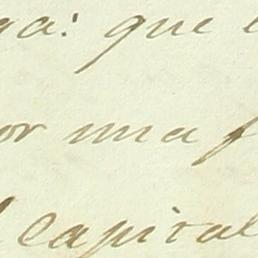 ga: que
or una
capital